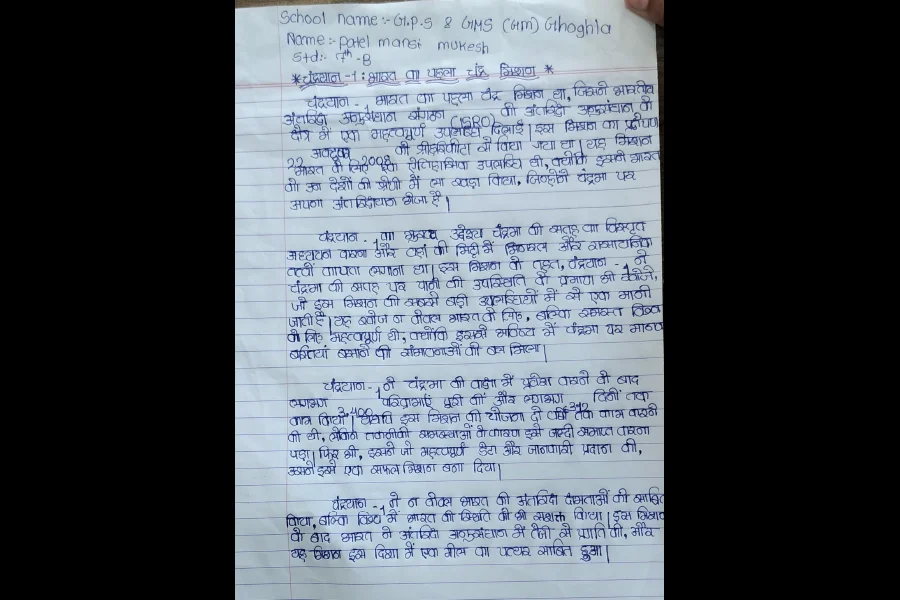 School name:- G.P.S & GMS (GM) Ghoghla
Name:- Patel mansi mukesh
Std:- 7th - B
* चंद्रयान -1 : भारत का पहला चंद्र मिशन *
चंद्रयान - 1 भारत का पहला चंद्र मिशन था, जिसने भारतीय
अंतरिक्ष अनुसंधान संगठन (ISRO) को अंतरिक्ष अनुसंधान के
क्षेत्र में एक महत्वपूर्ण उपलब्धि दिलाई | इस मिशन का प्रक्षेपण
22 अक्टूबर 2008 को श्रीहरिकोटा से किया गया था | यह मिशन
भारत के लिए एक ऐतिहासिक उपलब्धि थी, क्योंकि इसने भारत
को उन देशों की श्रेणी में ला खड़ा किया, जिन्होंने चंद्रमा पर
अपना अंतरिक्षयान भेजा है |
चंद्रयान - 1 का मुख्य उद्देश्य चंद्रमा की सतह का विस्तृत
अध्ययन करना और वहां की मिट्टी में खनिज और रासायनिक
तत्वों का पता लगाना था | इस मिशन के तहत, चंद्रयान - 1 ने
चंद्रमा की सतह पर पानी की उपस्थिति के प्रमाण भी खोजे,
जो इस मिशन की सबसे बड़ी उपलब्धियों में से एक मानी
जाती है | यह खोज न केवल भारत के लिए, बल्कि समस्त विश्व
के लिए महत्वपूर्ण थी, क्योंकि इससे भविष्य में चंद्रमा पर मानव
बस्तियां बसाने की संभावनाओं को बल मिला |
चंद्रयान - 1 ने चंद्रमा की कक्षा में प्रवेश करने के बाद
लगभग 3,400 परिक्रमाएं पूरी कीं और लगभग 312 दिनों तक
काम किया | हालांकि इस मिशन की योजना दो वर्षों तक काम करने
की थी, लेकिन तकनीकी समस्याओं के कारण इसे जल्दी समाप्त करना
पड़ा | फिर भी, इसने जो महत्वपूर्ण डेटा और जानकारी प्रदान की,
उसने इसे एक सफल मिशन बना दिया |
चंद्रयान - 1 ने न केवल भारत की अंतरिक्ष क्षमताओं को साबित
किया, बल्कि विश्व में भारत की स्थिति को भी सशक्त किया | इस मिशन
के बाद भारत ने अंतरिक्ष अनुसंधान में तेजी से प्रगति की, और
यह मिशन इस दिशा में एक मील का पत्थर साबित हुआ |